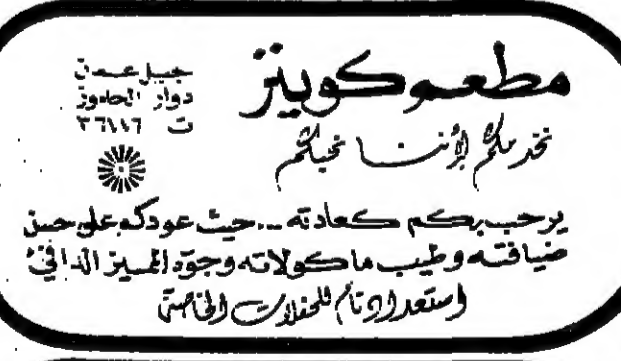 مطعم كوينز
جبل عمان
دوار الحاووز
ت ٣٦١١٦
نخدمكم لأننا نحبكم
يرحب بكم كعادته ... حيث عودكم على حسن
ضيافته وطيب ماكولاته وجوّه المميز الدافئ
استعداد تام للحفلات الخاصة